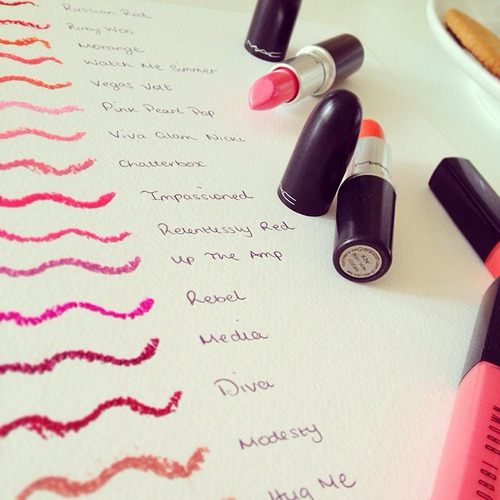 Russian Red
Ruby Woo
Morange
Watch Me Simmer
Vegas Volt
Pink Pearl Pop
Viva Glam Nicki
Chatterbox
Impassioned
Relentlessly Red
Up The Amp
Rebel
Media
Diva
Modesty
Hug Me
MAC
MAC
BOBBI BROWN